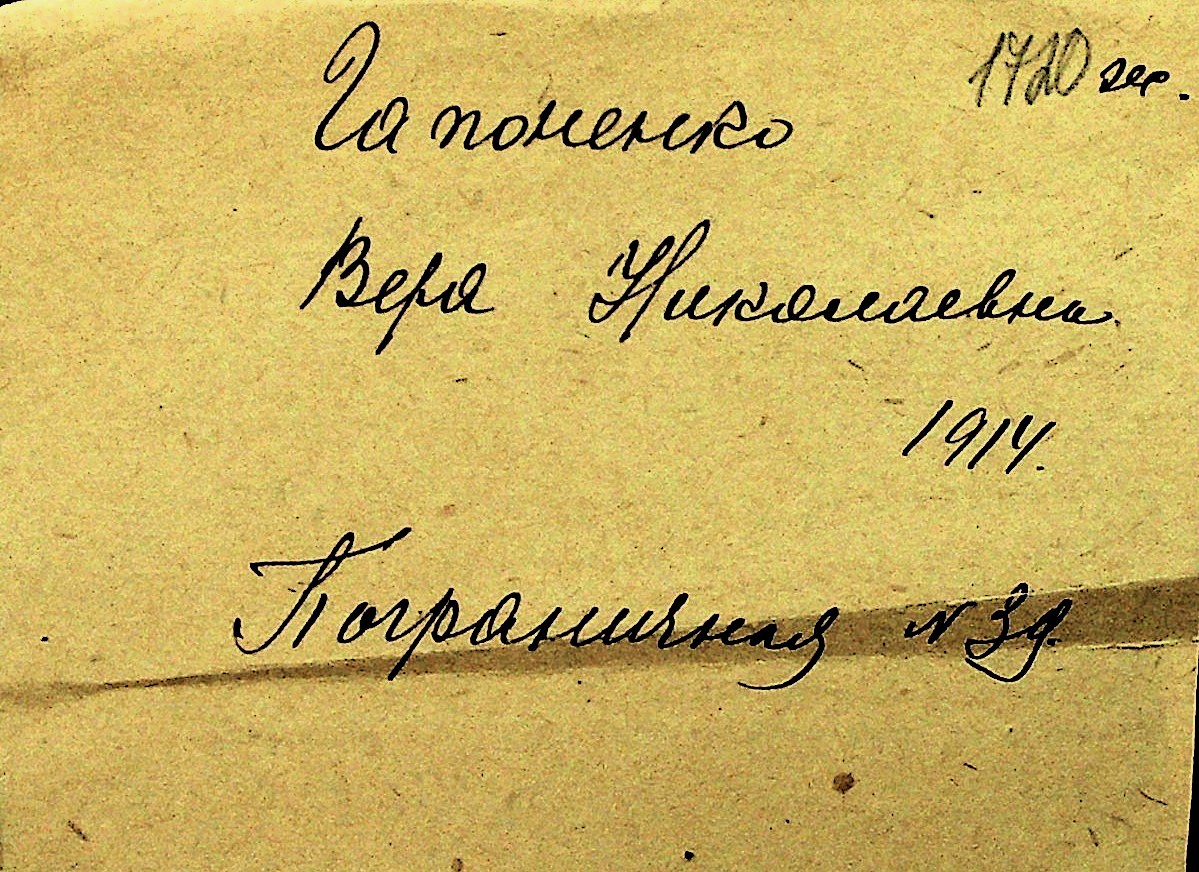 1720
Гапоненко
Вера Николаевна
1914.
Пограничная №